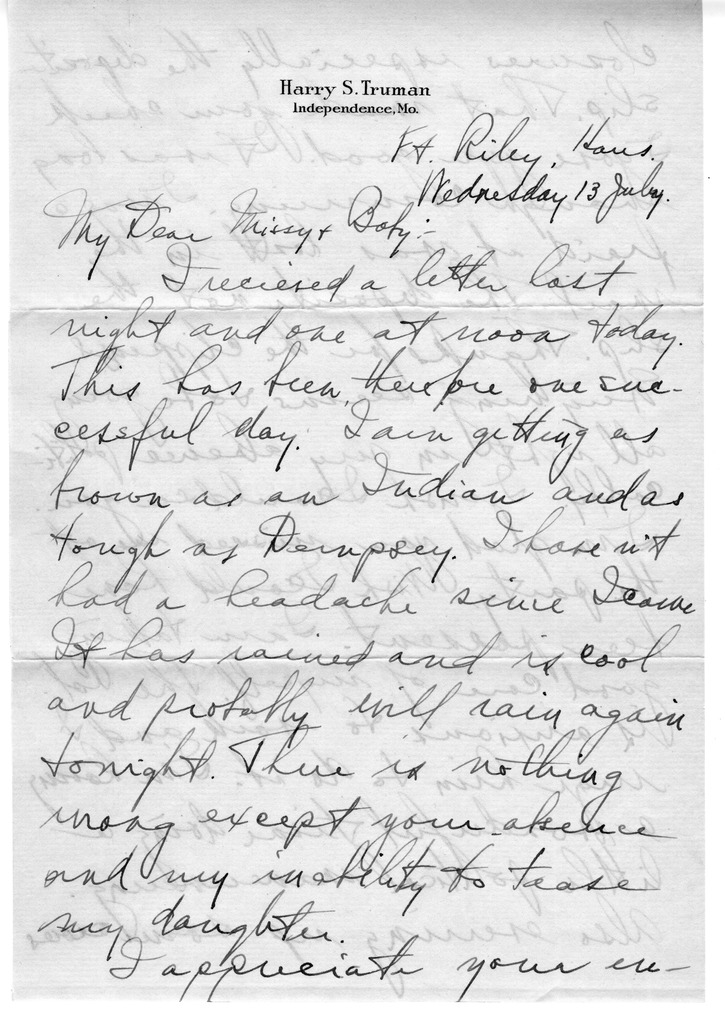 Harry S. Truman
Independence, Mo.
Ft. Riley, Kans.
Wednesday 13 July.
My Dear Missy & Baby:-
I recieved a letter last
night and one at noon today.
This has been, therefore one suc-
cessful day. I am getting as
brown as an Indian and as
tough as Dempsey. I have n't
had a headache since I came
It has rained and is cool
and probably will rain again
tonight. There is nothing
wrong except your absence
and my inability to tease
my daughter.
I appreciate your en-